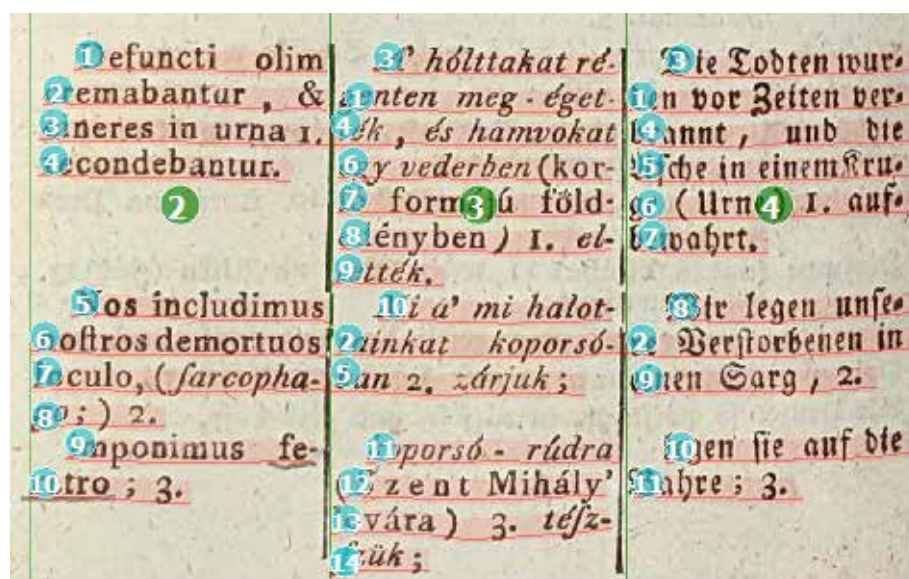 Defuncti olim
cremabantur , &
cineres in urna 1.
recondebantur.
Nos includimus
noſtros demortuos
loculo, (ſarcopha-
go ; ) 2.
Imponimus fe-
retro ; 3.
A' hólttakat ré-
genten meg - éget-
ték , és hamvokat
egy vederben (kor-
só formájú föld-
edényben ) 1. el-
tették.
Mi a' mi halot-
tainkat koporsó-
ban 2. zárjuk ;
koporsó - rúdra
(Szent Mihály'
lovára ) 3. téſz-
ſzük ;
Die Todten wur-
den vor Zeiten ver-
brannt , und die
Aſche in einem Kru-
ge (Urne) 1. auf-
bewahrt.
Wir legen unſe-
re Verſtorbenen in
einen Sarg , 2.
legen ſie auf die
Bahre ; 3.